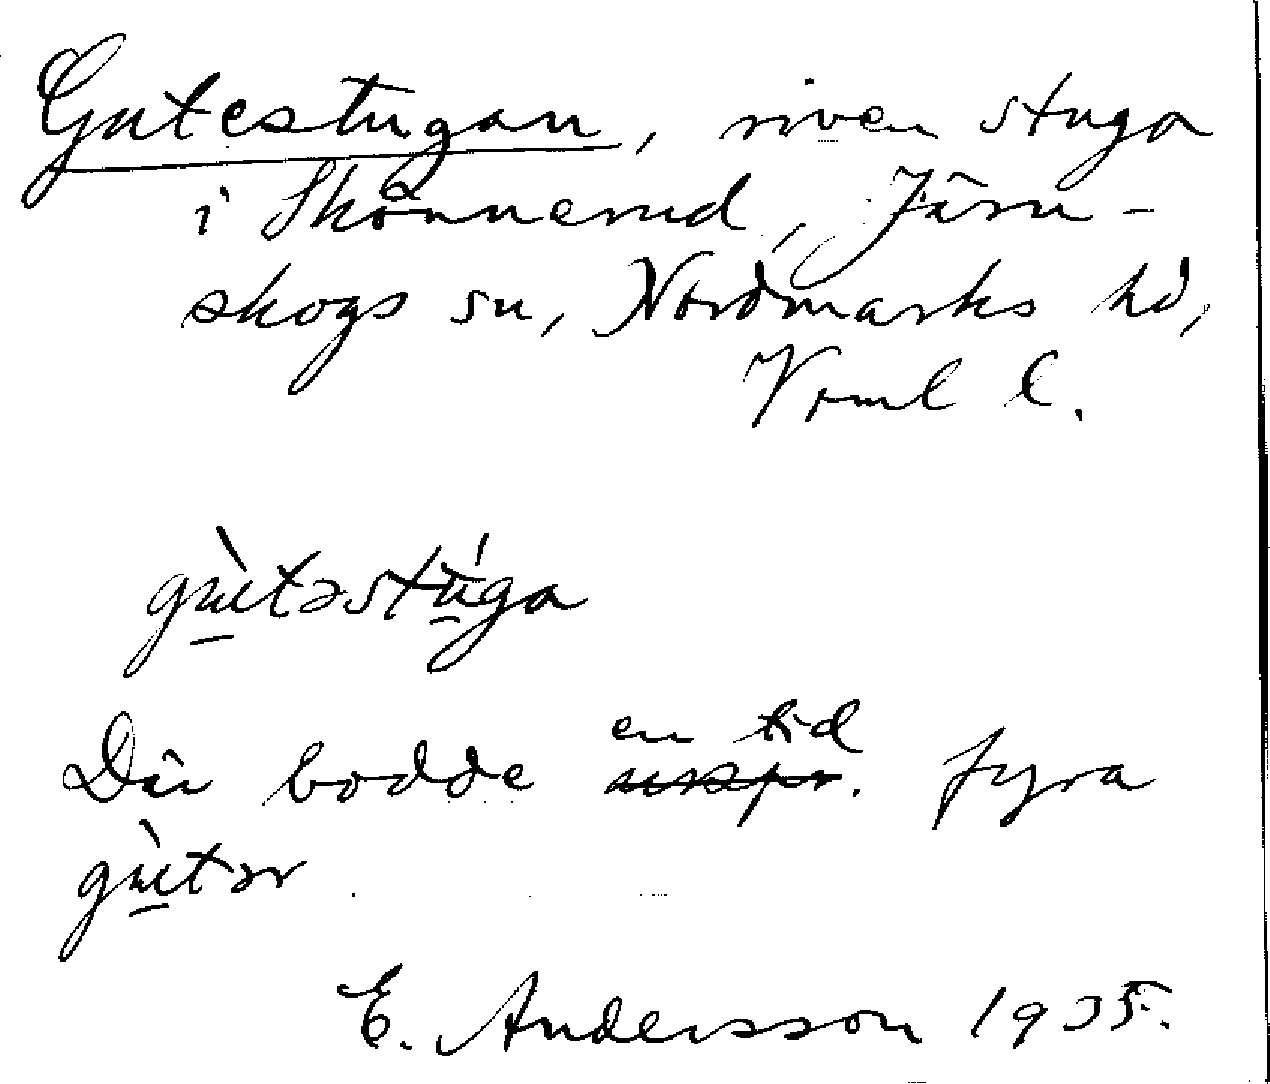 Gutestugan, riven stuga
i Skönnerud, Järn-
skogs sn, Nordmarks hd,
Vrml l.
gù̱təstú̱ga
Där bodde en tid fyra
gù̱tər
E. Andersson 1935.